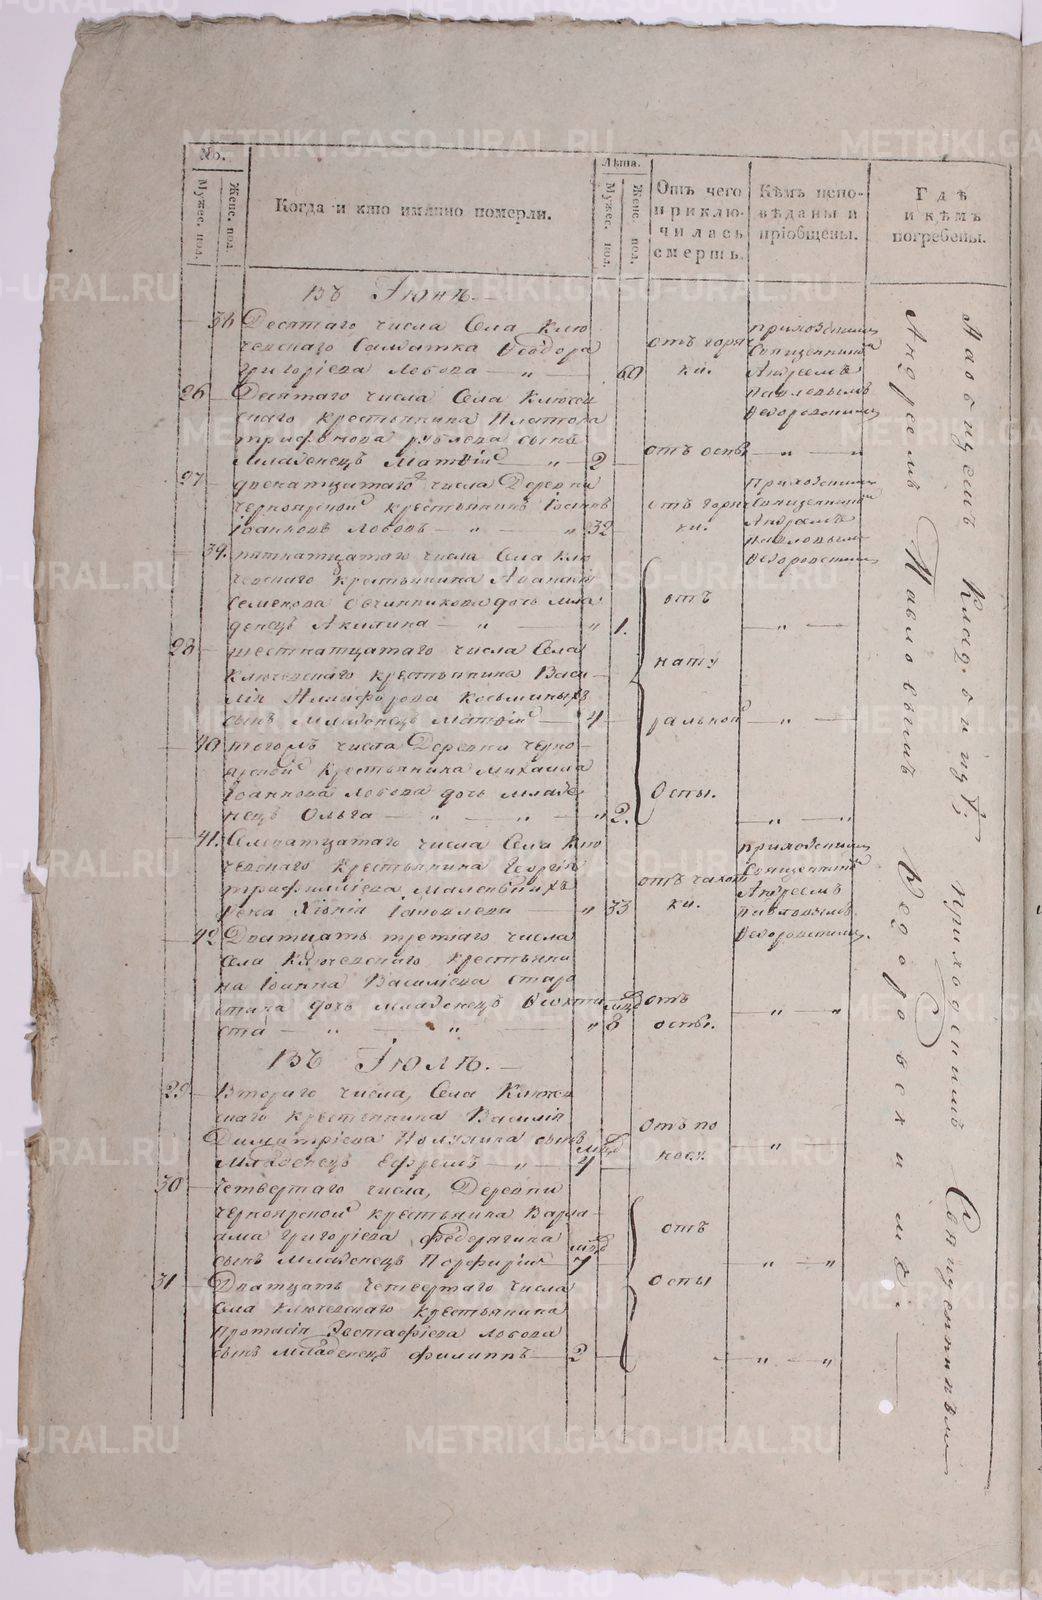 METRIKI.GASO-URAL.RU
№.
Мужес. пол.
Женс. пол.
Когда и кто имянно померли.
Лѣта.
Мужес. пол.
Женс. пол.
Отъ чего приклю-чилась смерть.
Кѣмъ испо-вѣданы и пріобщены.
Гдѣ и кѣмъ погребены.
Въ Іюнѣ.
Десятаго числа Села Клю
чевскаго Солдатка Ѳеодора
Григоріева Лобова — " — 60
отъ горяч
ки.
приходскимъ
Священникомъ
Андреемъ
Павловымъ
Ведоровскимъ
26 Десятаго числа Села Ключев
скаго крестьянина Платона
Трифонова Рублева сынъ
Младенецъ Матвій — " — 2
отъ оспы — " — "
27 двенатцатаго числа Деревни
Черноярской крестьянинъ Іоаннъ
Іоанновъ Лобовъ — " — " 32
отъ горяч
ки.
приходскимъ
Священникомъ
Андреемъ
Павловымъ
Ведоровскимъ
39. пятнатцатаго числа Села Клю
чевскаго крестьянина Аѳанасія
Семенова Овчинникова дочь мла
денецъ Акилина — " — " 1.
отъ
— " —
28 шестнатцатаго числа Села
Ключевскаго крестьянина Васи
лія Никифорова Косьминыхъ
сынъ Младенецъ Матвій — 4
нату
ральной — " —
40 тогожъ числа Деревни Черно
ярской крестьянина Михаила
Іоаннова Лобова дочь младе
нецъ Ольга — " — " — " 2.
Оспы.
— " — "
41. Семнатцатаго числа Села Клю
чевскаго крестьянина Георгія
Трифилліева
жена Ксенія Іаковлева — " 33
отъ чахот
ки.
приходскимъ
Священникомъ
Андреемъ
Павловымъ
Ведоровскимъ.
42 Дватцать третяго числа
Села Ключевскаго крестьяни
на Іоанна Василіева Старо
стина дочь младенецъ Ѳеокти
ста — " — " — " 8
отъ
оспы.
— " — "
Въ Іюлѣ.
29 Втораго числа, Села Ключев
скаго крестьянина Василія
Димитріева сынъ
Младенецъ Ефремъ — " — 4
отъ по
носу.
— " —
30 Четвертаго числа, Деревни
Черноярской крестьянина Варла
ама Григоріева Федерягина
сынъ младенецъ Порфирій 7
отъ
" — "
31 Дватцать четвертаго числа
Села Ключевскаго крестьянина
Протасія Евстафіева Лобова
сынъ младенецъ Филиппъ — 2
оспы
— " — "
На общемъ кладбищѣ, приходскимъ Священникомъ
Андреемъ Павловымъ Ведоровскимъ.